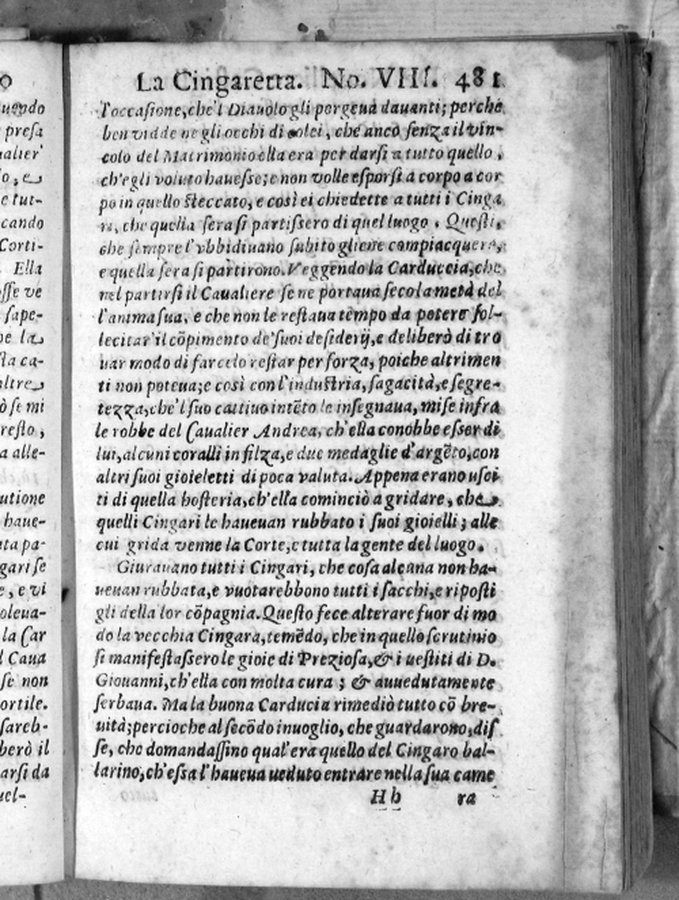 o
uendo
presa
ualier
o, e
e tut-
cando
Corti-
Ella
osse ve
sape-
he la
sta ca-
oltre
ò se mi
resto,
a alle-
utione
haue-
ta pa-
gari se
e, e vi
oleua-
la Car
l Caua
se non
ortile.
sareb-
berò il
arsi da
uel-
La Cingaretta. No. VIII. 481
l'occasione, che'l Diauolo gli porgeua dauanti; perche
ben vidde ne gli occhi di colei, che anco senza il vin-
colo del Matrimonio ella era per darsi a tutto quello,
ch'egli voluto hauesse; e non volle esporsi a corpo a cor
po in quello steccato, e così ei chiedette a tutti i Cinga
ri, che quella sera si partissero di quel luogo. Questi,
che sempre l'vbbidiuano subito gliene compiacquero,
e quella sera si partirono. Veggendo la Carduccia, che
nel partirsi il Caualiere se ne portaua seco la metà del
l'anima sua, e che non le restaua tẽpo da potere sol-
lecitar'il cõpimento de'suoi desiderij, e deliberò di tro
uar modo di farcelo restar per forza, poiche altrimen
ti non poteua; e così con l'industria, sagacità, e segre-
tezza, che'l suo cattiuo intẽto le insegnaua, mise infra
le robbe del Caualier Andrea, ch'ella conobbe esser di
lui, alcuni coralli in filza, e due medaglie d'argẽto, con
altri suoi gioieletti di poca valuta. Appena erano usci
ti di quella hosteria, ch'ella cominciò a gridare, che
quelli Cingari le haueuan rubbato i suoi gioielli; alle
cui grida venne la Corte, e tutta la gente del luogo.
Giurauano tutti i Cingari, che cosa alcuna non ha-
ueuan rubbata, e vuotarebbono tutti i sacchi, e riposti
gli della lor cõpagnia. Questo fece alterare fuor di mo
do la vecchia Cingara, temẽdo, che in quello scrutinio
si manifestassero le gioie di Preziosa, & i uestiti di D.
Giouanni, ch'ella con molta cura; & auuedutamente
serbaua. Ma la buona Carducia rimediò tutto cõ bre-
uità; percioche al secõdo inuoglio, che guardarono, dis
se, che domandassino qual'era quello del Cingaro bal-
larino, ch'essa l'haueua ueduto entrare nella sua came
Hh ra